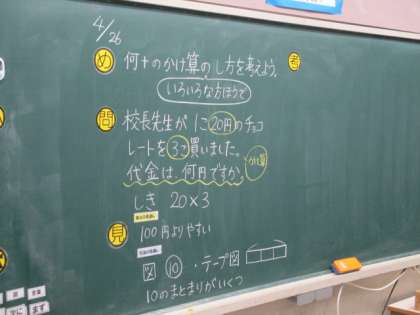 4/26
め 何十のかけ算のし方を考えよう。
考
いろいろな方ほうで
問 校長先生が 1こ20円のチョコ
レートを3つ買いました。
代金は、何円ですか。
かけ算
しき 20×3
見 100円よりやすい
図 ⑩ ・テープ図
10のまとまりがいくつ